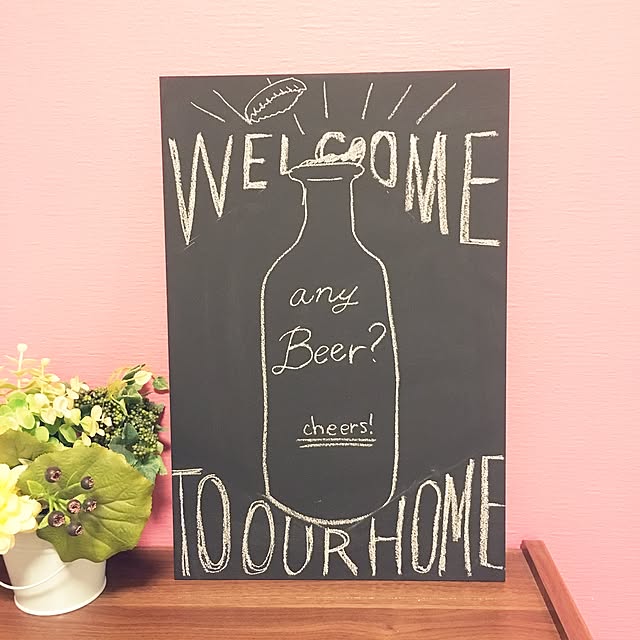 WELCOME
any
Beer?
cheers!
TO OUR HOME